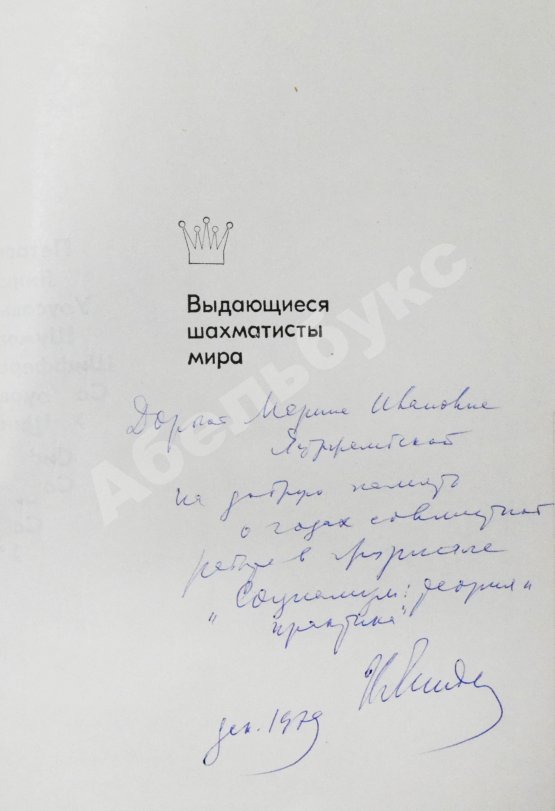 Выдающиеся
шахматисты
мира
Дорогой Марине Ивановне
на добрую память
о годах совместной
работы в журнале
"Социализм: теория и
практика"
дек. 1979
Абельбукс